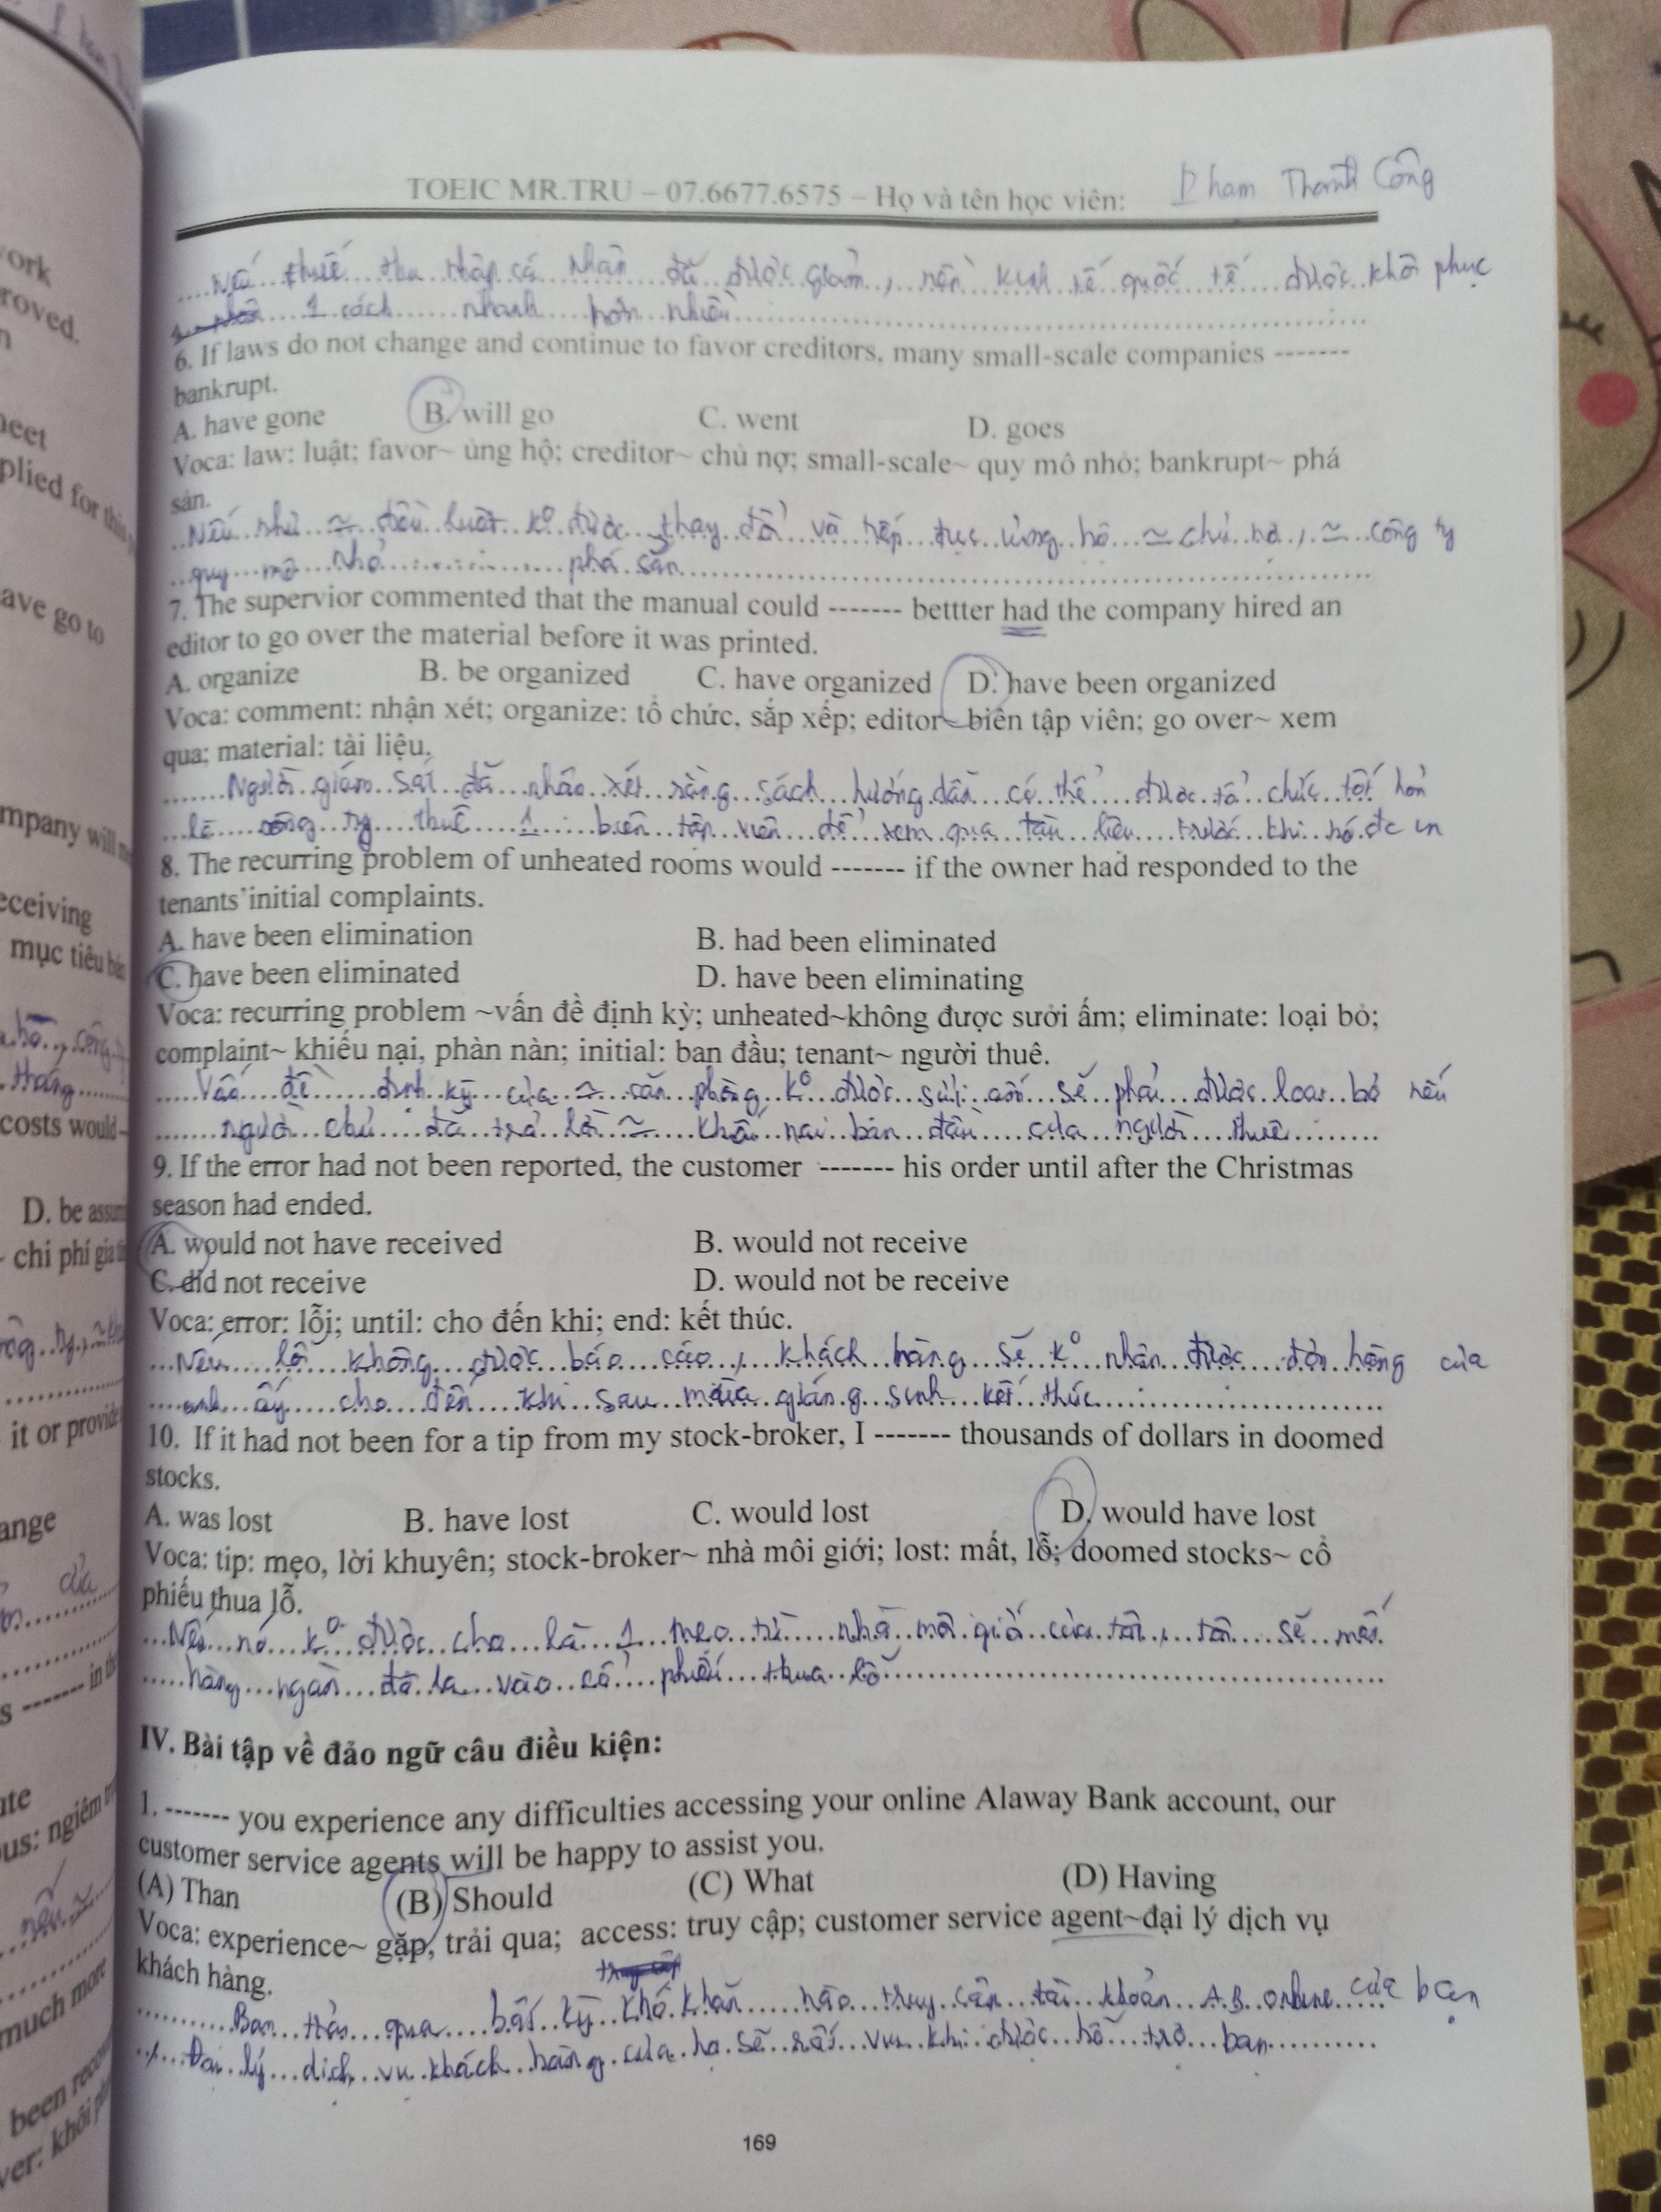 TOEIC MR.TRU – 07.6677.6575 – Họ và tên học viên: Phạm Thanh Công
Nếu thuế thu nhập cá nhân đã được giảm, nền kinh tế quốc tế được khôi phục
1 cách nhanh hơn nhiều
6. If laws do not change and continue to favor creditors, many small-scale companies -------
bankrupt.
A. have gone B. will go C. went D. goes
Voca: law: luật; favor~ ủng hộ; creditor~ chủ nợ; small-scale~ quy mô nhỏ; bankrupt~ phá
sản.
Nếu như ≃ điều luật k° được thay đổi và tiếp tục ủng hộ ≃ chủ nợ, ≃ công ty
quy mô nhỏ phá sản
7. The supervior commented that the manual could ------- bettter had the company hired an
editor to go over the material before it was printed.
A. organize B. be organized C. have organized D. have been organized
Voca: comment: nhận xét; organize: tổ chức, sắp xếp; editor~ biên tập viên; go over~ xem
qua; material: tài liệu.
Người giám sát đã nhận xét rằng sách hướng dẫn có thể được tổ chức tốt hơn
công ty thuê 1 biên tập viên để xem qua tài liệu trước khi nó đc in
8. The recurring problem of unheated rooms would ------- if the owner had responded to the
tenants'initial complaints.
A. have been elimination B. had been eliminated
C. have been eliminated D. have been eliminating
Voca: recurring problem ~vấn đề định kỳ; unheated~không được sưởi ấm; eliminate: loại bỏ;
complaint~ khiếu nại, phàn nàn; initial: ban đầu; tenant~ người thuê.
Vấn đề định kỳ của ≃ căn phòng k° được sưởi ấm sẽ phải được loại bỏ nếu
người chủ đã trả lời ≃ khiếu nại ban đầu của người thuê
9. If the error had not been reported, the customer ------- his order until after the Christmas
season had ended.
A. would not have received B. would not receive
C. did not receive D. would not be receive
Voca: error: lỗi; until: cho đến khi; end: kết thúc.
Nếu lỗi không được báo cáo, khách hàng sẽ k° nhận được đơn hàng của
anh ấy cho đến khi sau mùa giáng sinh kết thúc
10. If it had not been for a tip from my stock-broker, I ------- thousands of dollars in doomed
stocks.
A. was lost B. have lost C. would lost D. would have lost
Voca: tip: mẹo, lời khuyên; stock-broker~ nhà môi giới; lost: mất, lỗ; doomed stocks~ cổ
phiếu thua lỗ.
Nếu nó k° được cho là 1 mẹo từ nhà môi giới của tôi, tôi sẽ mất
hàng ngàn đô la vào cổ phiếu thua lỗ
IV. Bài tập về đảo ngữ câu điều kiện:
1. ------- you experience any difficulties accessing your online Alaway Bank account, our
customer service agents will be happy to assist you.
(A) Than (B) Should (C) What (D) Having
Voca: experience~ gặp, trải qua; access: truy cập; customer service agent~đại lý dịch vụ
khách hàng.
Bạn trải qua bất kỳ khó khăn nào truy cập tài khoản A.B online của bạn
, Đại lý dịch vụ khách hàng của họ sẽ rất vui khi được hỗ trợ bạn
169